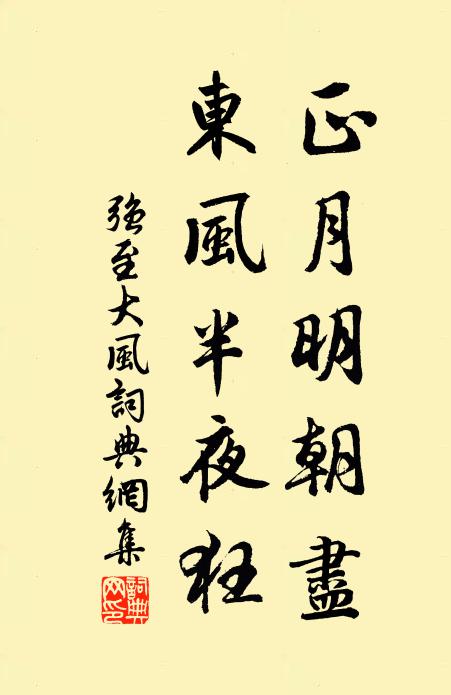 正月明朝盡
東風半夜狂
強至大風詞典網集
詞典網印